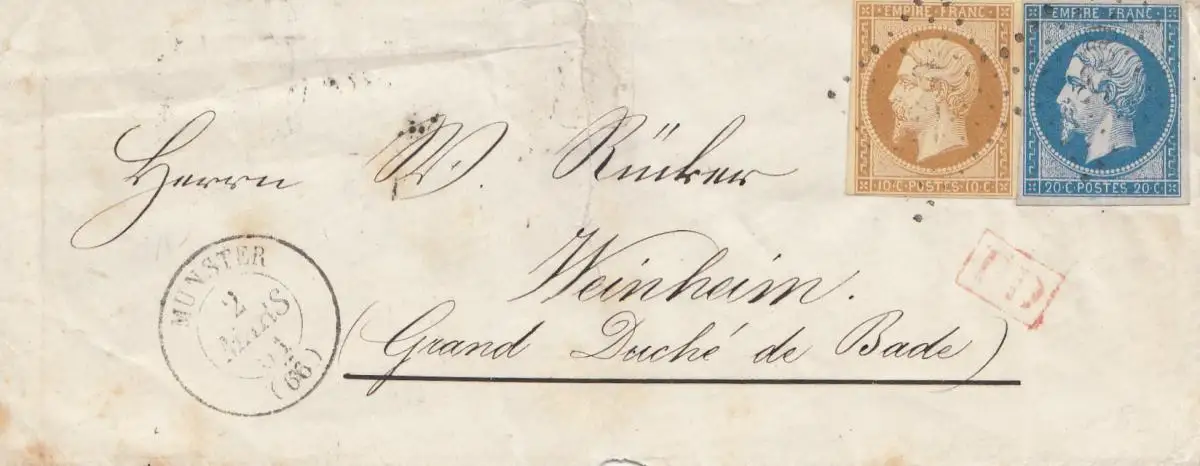 EMPIRE FRANC
EMPIRE FRANC
10·C·POSTES 10·C·
20·C·POSTES 20·C·
Herrn W. Rücker
Weinheim.
(Grand Duché de Bade)
PD
MUNSTER
2
MARS
(66)